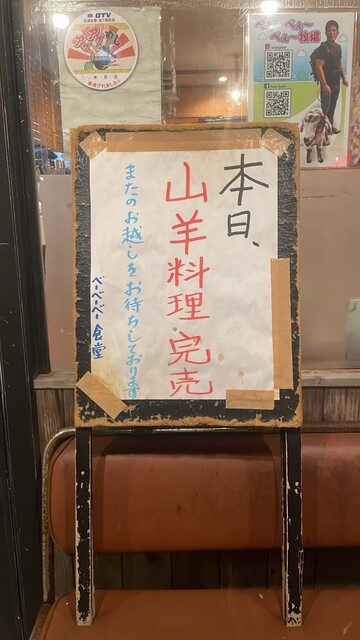 本日、
山羊料理完売
またのお越しをお待ちしております
べーべーべー食堂
OTV
べぇ～べぇ～
べぇ～牧場